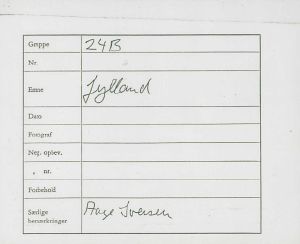 Gruppe 24B
Nr.
Emne Jylland
Dato
Fotograf
Neg. opbev.
„ nr.
Forbehold
Særlige Aage Iversen
bemærkninger